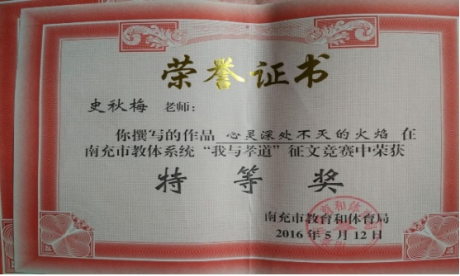 荣誉证书
史秋梅 老师：
你撰写的作品 心灵深处不灭的火焰 在
南充市教体系统“我与孝道”征文竞赛中荣获
特等奖
南充市教育和体育局
2016年5月12日